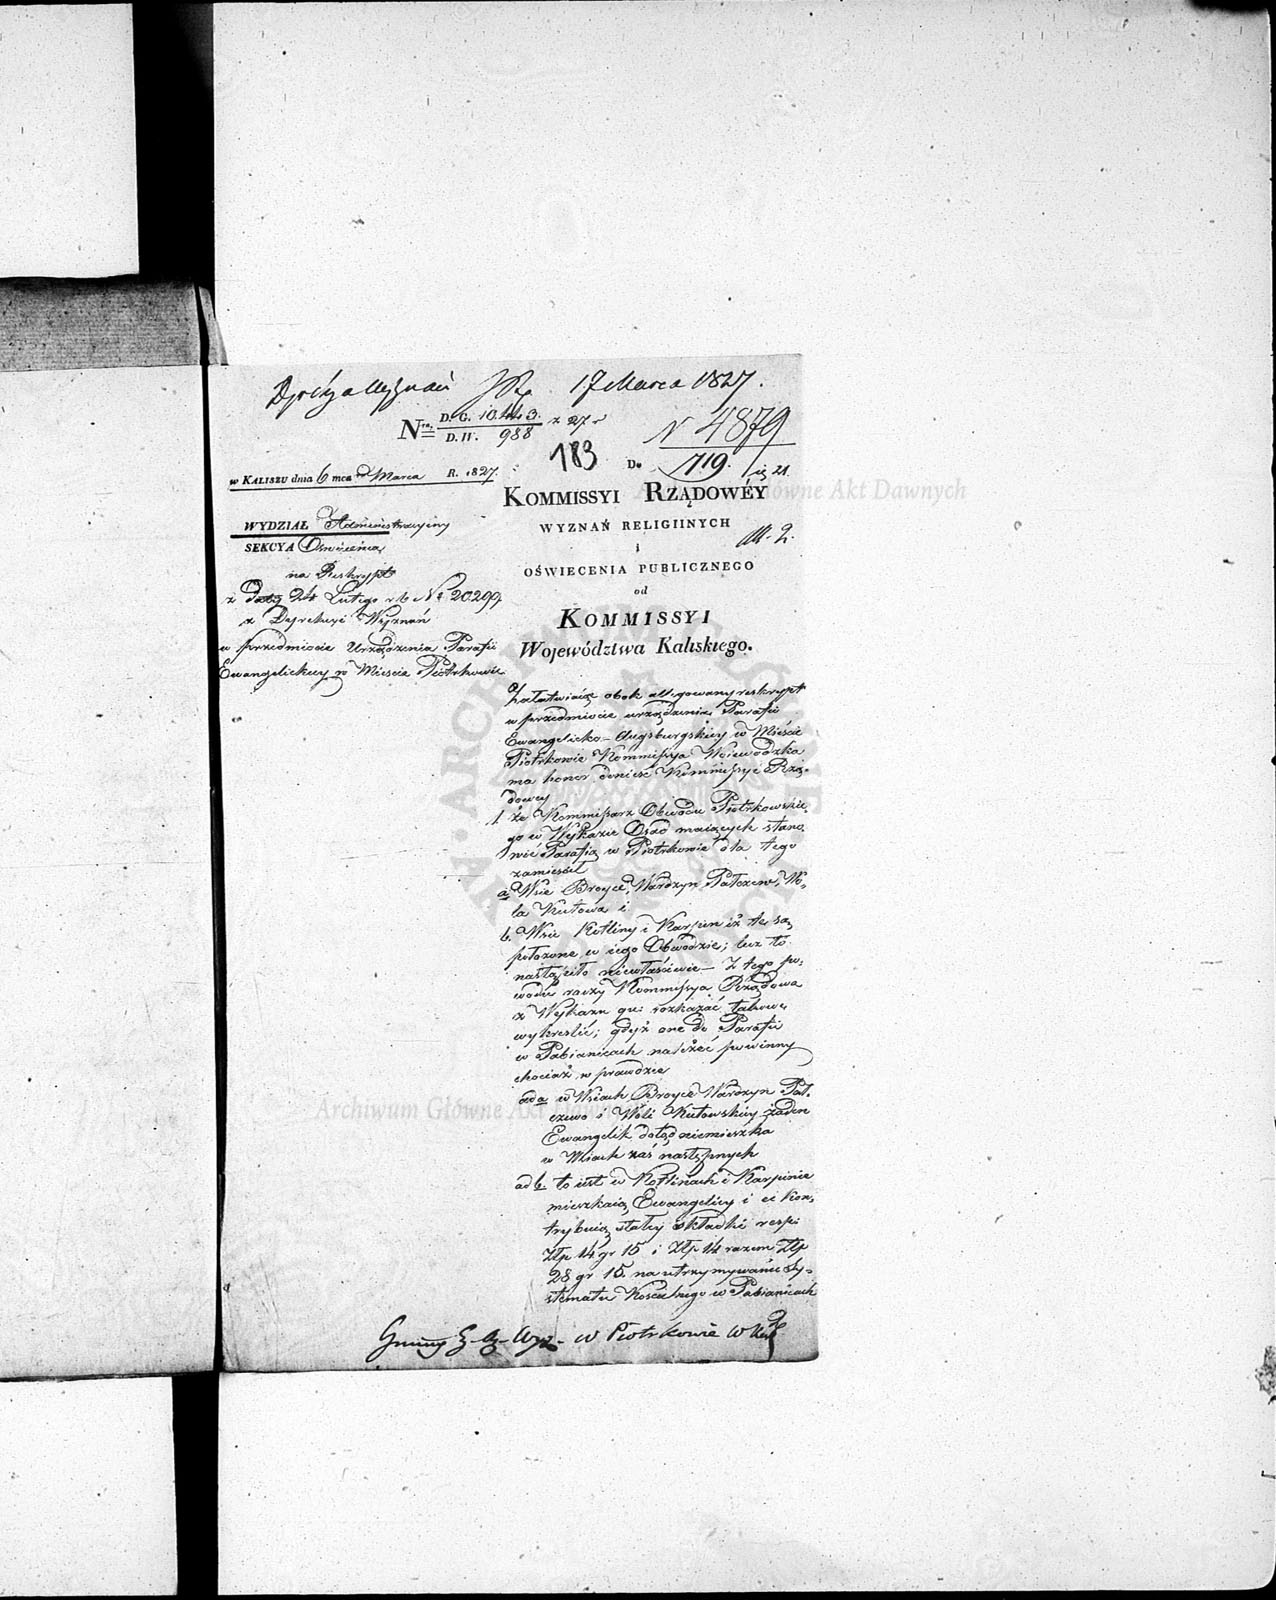 Dyrekcya Wyznań 17 Marca 1827.
Nra. D. G. 10443. z 27 r
D. W. 988
N 4879
719.
183
Do
w KALISZU dnia 6 mca Marca R. 1827.
KOMMISSYI RZĄDOWÉY
WYZNAŃ RELIGIINYCH
i
OŚWIECENIA PUBLICZNEGO
od
KOMMISSYI
Województwa Kaliskiego.
WYDZIAŁ Administracyiny
SEKCYA Oświecenia
na Reskrypt
z daty 24 Lutego r b Nr 20299
z Dyrekcyi Wyznań
w przedmiocie Urządzenia Parafii
Ewangelickiey w Mieście Piotrkowie
Załatwiaiąc obok allegowany reskrypt
w przedmiocie urządzenia Parafii
Ewangelicko-Augsburgskiey w Mieście
Piotrkowie Kommissya Woiewódzka
ma honor donieść Kommissyi Rzą-
dowey
1. że Kommissarz Obwodu Piotrkowskie-
go w Wykazie Osad maiących stano-
wić Parafią w Piotrkowie dla tego
zamieścił
a. Wsie Broyce, Wardzyn Pałczew, Wo-
la Kutowa i
b. Wsie Kotliny i Karpin iż te są
położone w iego Obwodzie; lecz to
nastąpiło niewłaściwie – Z tego po-
wodu raczy Kommissya Rządowa
z Wykazu qu: rozkazać takowe
wykreślić; gdyż one do Parafii
w Pabianicach należeć powinny
chociaż w prawdzie
ad a. w Wsiach Broyce Wardzyn Pał-
czewo i Woli Kutowskiey żaden
Ewangelik dotąd niemieszka
w Wsiach zaś następnych
ad b. to iest w Kotlinach i Karpinie
mieszkaią Ewangelicy i ci kon-
trybuią stałey składki resp:
Złp 14 gr 15 i Złp 14 razem Złp
28 gr 15. na utrzymywanie Sy-
stematu Koscielnego w Pabianicach
Gminy w Piotrkowie
Archiwum Główne Akt Dawnych